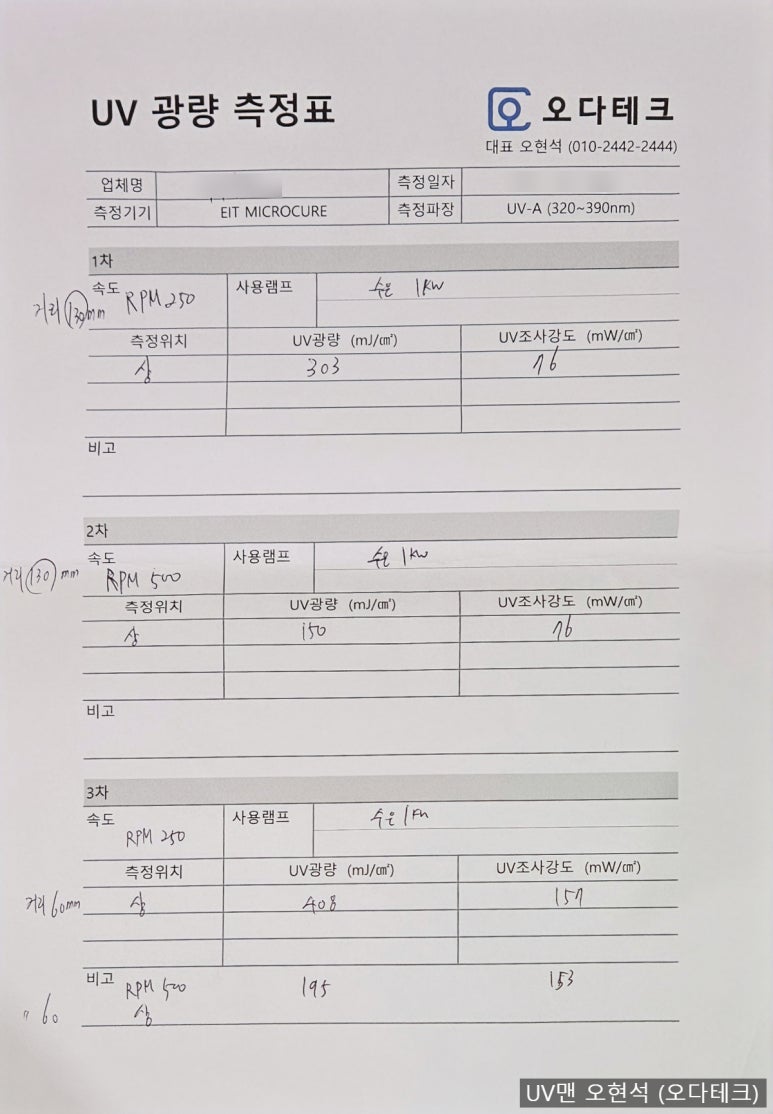 UV 광량 측정표
오다테크
대표 오현석 (010-2442-2444)
업체명 측정일자
측정기기 EIT MICROCURE 측정파장 UV-A (320~390nm)
1차
속도 RPM 250 사용램프 수은 1KW
거리 130mm
측정위치 UV광량 (mJ/㎠) UV조사강도 (mW/㎠)
상 303 76
비고
2차
속도 RPM 500 사용램프 수은 1KW
거리 130 mm
측정위치 UV광량 (mJ/㎠) UV조사강도 (mW/㎠)
상 150 76
비고
3차
속도 RPM 250 사용램프 수은 1KW
측정위치 UV광량 (mJ/㎠) UV조사강도 (mW/㎠)
거리 60mm 상 408 157
비고 RPM 500 195 153
〃 60 상
UV맨 오현석 (오다테크)